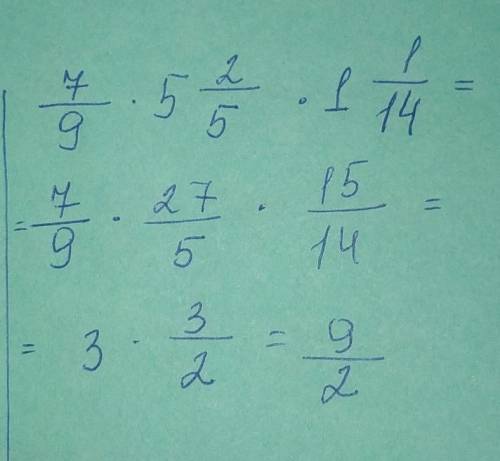 7/9 · 5 2/5 · 1 1/14 =
= 7/9 · 27/5 · 15/14 =
= 3 · 3/2 = 9/2